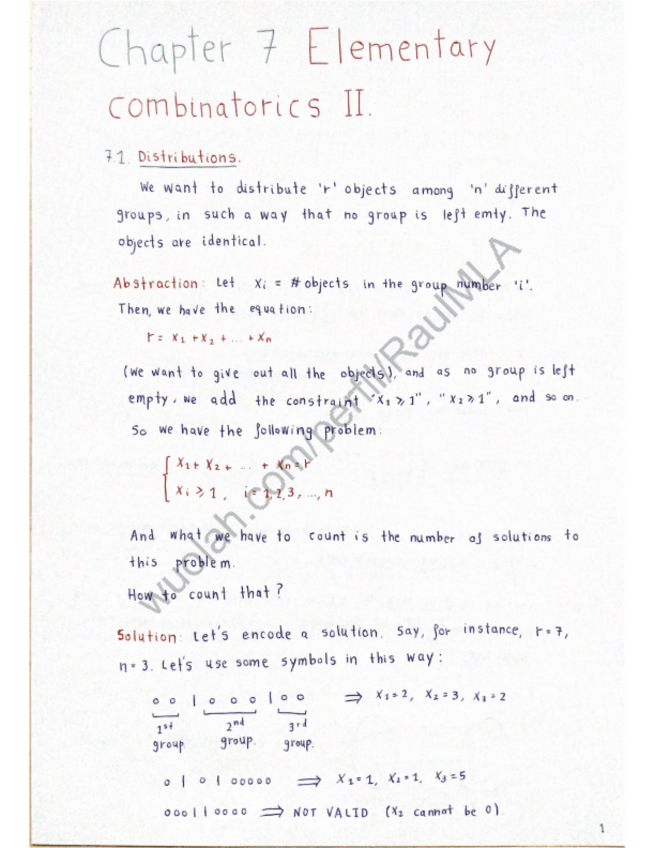 Chapter 7 Elementary
combinatorics II.
7.1. Distributions.
We want to distribute 'r' objects among 'n' different
groups, in such a way that no group is left emty. The
objects are identical.
Abstraction: Let Xi = # objects in the group number 'i'.
Then, we have the equation:
r = x1 + x2 + ... + xn
(we want to give out all the objects), and as no group is left
empty, we add the constraint "x1 ⩾ 1", "x2 ⩾ 1", and so on.
So we have the following problem:
{ x1 + x2 + ... + xn = r
xi ⩾ 1, i = 1,2,3, ..., n
And what we have to count is the number of solutions to
this problem.
How to count that?
Solution: Let's encode a solution. Say, for instance, r = 7,
n = 3. Let's use some symbols in this way:
o o | o o o | o o ⟹ x1 = 2, x2 = 3, x3 = 2
1st 2nd 3rd
group. group. group.
o | o | o o o o o ⟹ x1 = 1, x2 = 1, x3 = 5
o o o | | o o o o ⟹ NOT VALID (x2 cannot be 0).
1
wuolah.com/perfil/RaulMLA